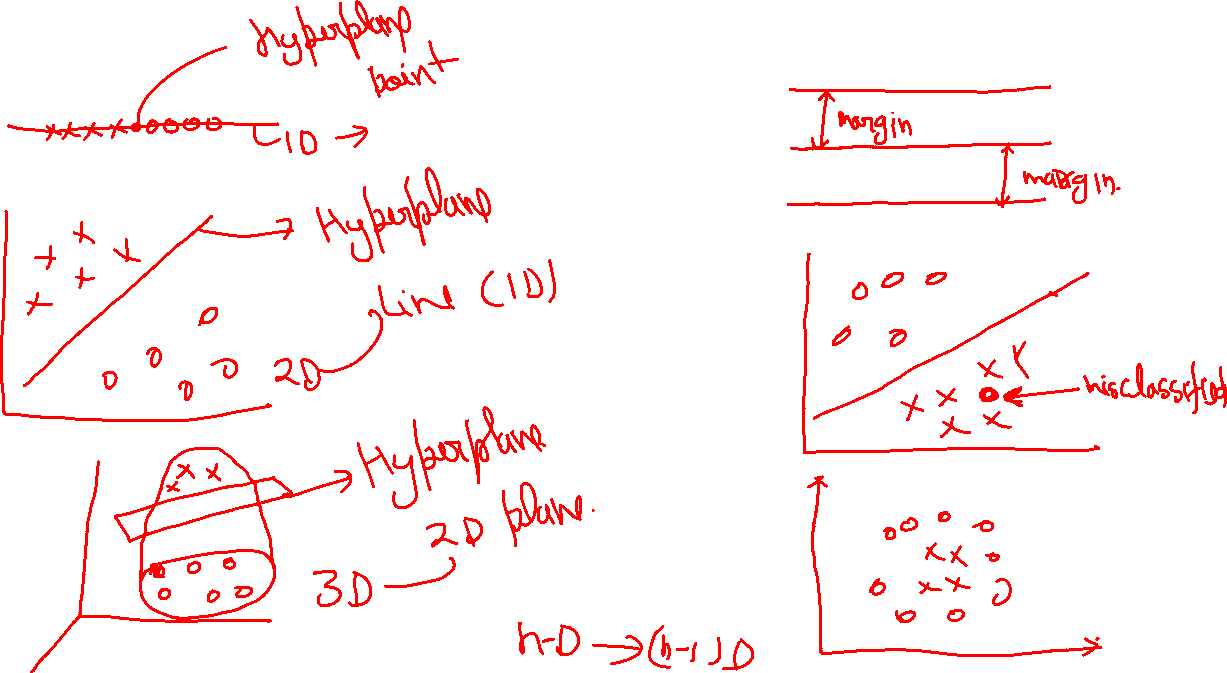 Hyperplane
point
1D →
Hyperplane
Line (1D)
2D
Hyperplane
2D plane.
3D
n-D → (n-1)D
margin
margin.
misclassified